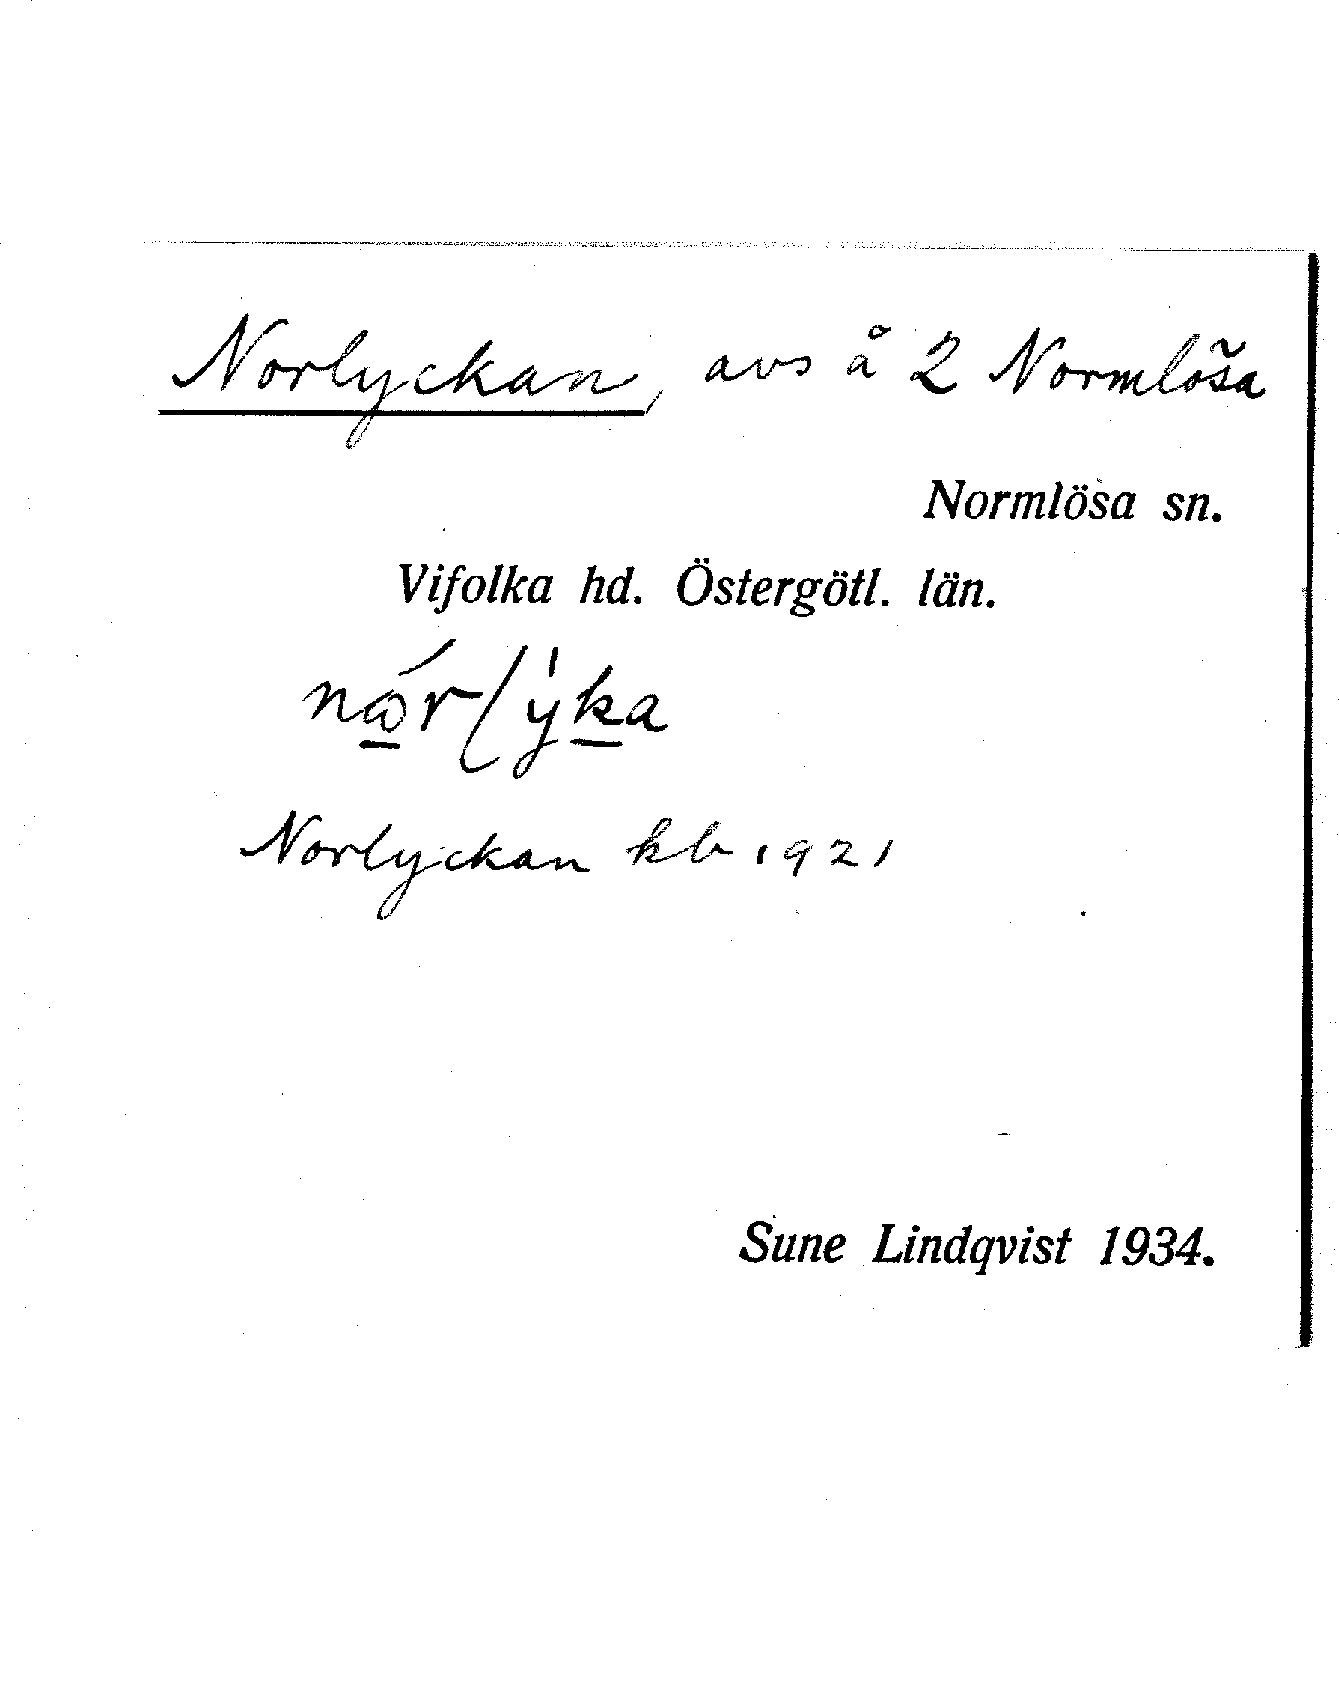 Norlyckan, avs å 2 Normlösa
Normlösa sn.
Vifolka hd. Östergötl. län.
Norlyckan kb 1921
Sune Lindqvist 1934.